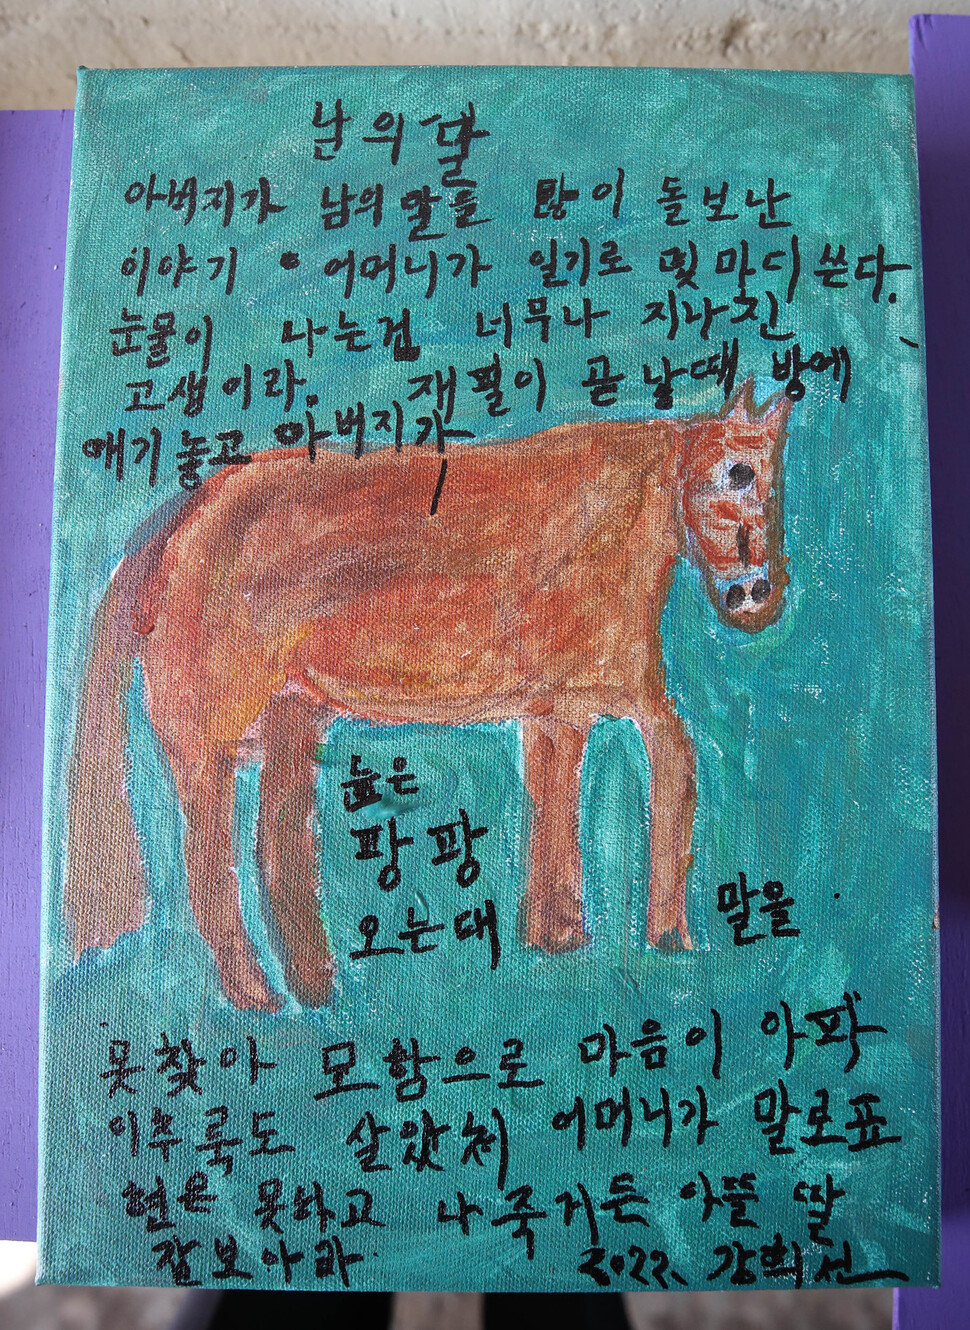 난의 말
아버지가 남의 말을 많이 돌보난
이야기 • 어머니가 일기로 몇 마디 쓴다.
눈물이 나는 검 너무나 지나친
고생이라. 재필이 곧 낳 때 방에
애기 놓고 아버지가
눞은
팡팡
오는대
말을
못찾아 모함으로 마음이 아파
이추룩도 살았쳐 어머니가 말로표
현은 못하고 나 죽거든 아뜰 딸
잘보아라.
2022. 강희선